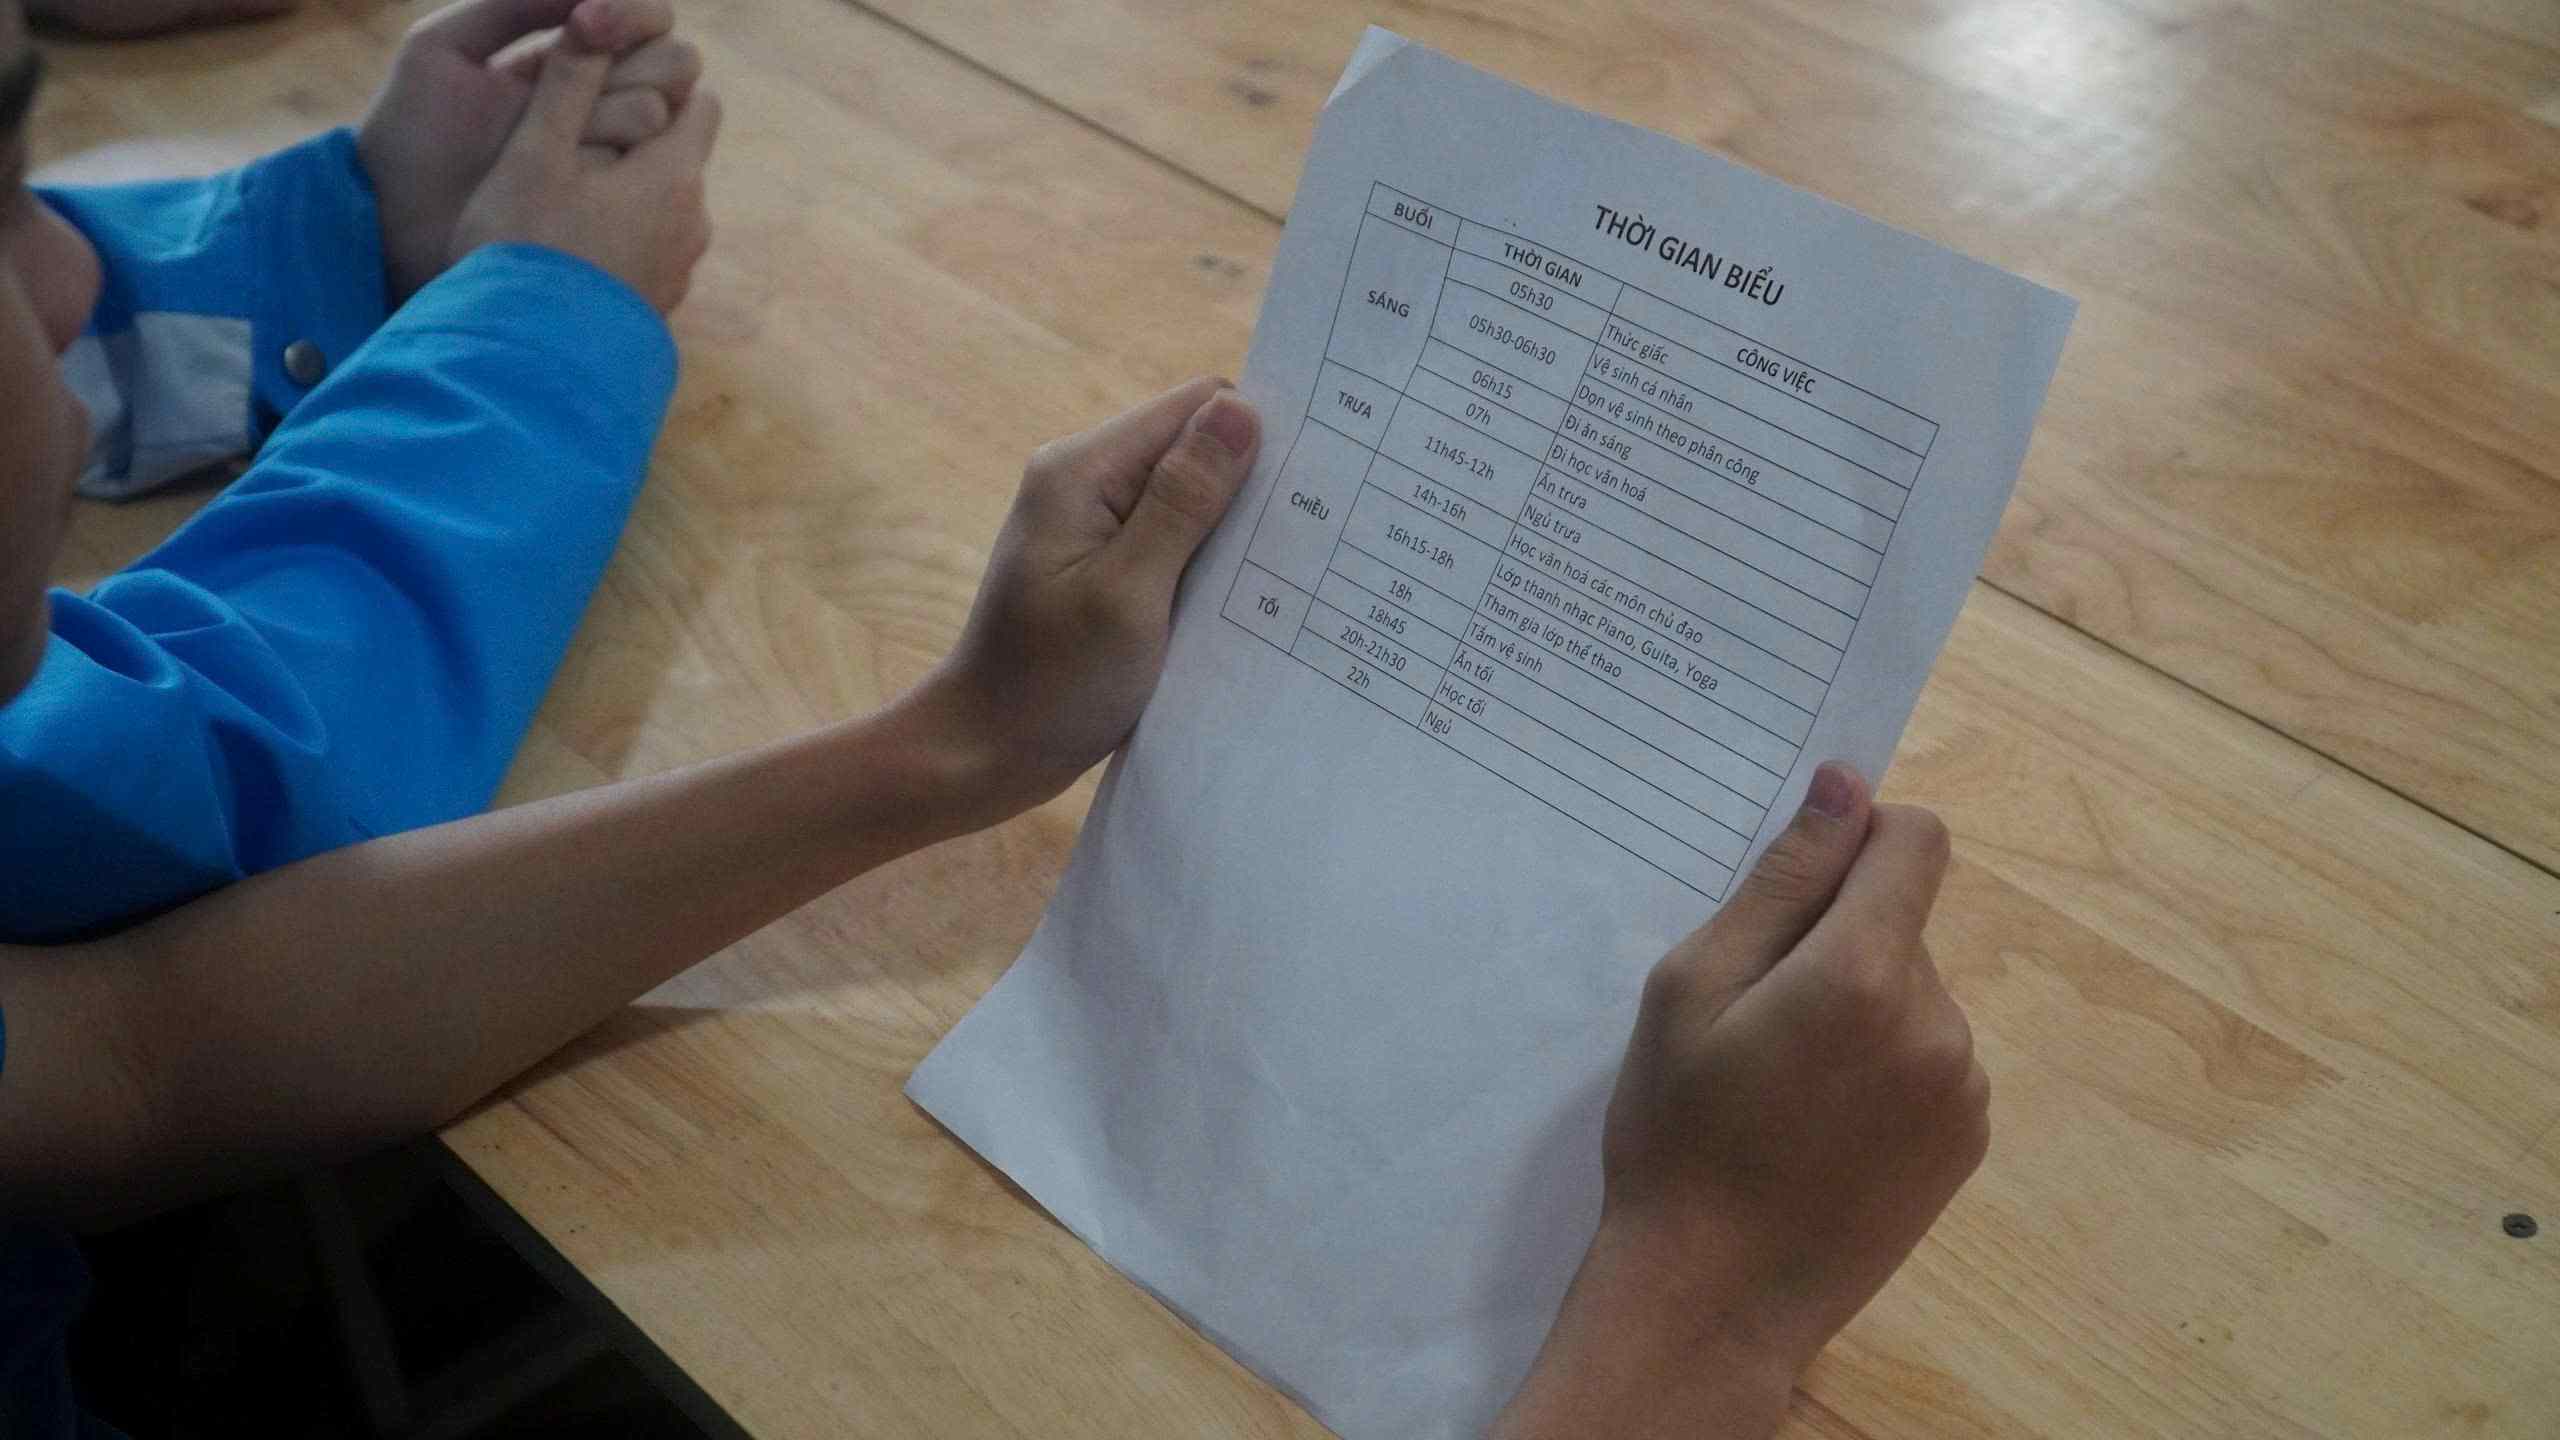 THỜI GIAN BIỂU
BUỔI THỜI GIAN CÔNG VIỆC
SÁNG 05h30 Thức giấc
05h30-06h30 Vệ sinh cá nhân
Dọn vệ sinh theo phân công
06h15 Đi ăn sáng
07h Đi học văn hoá
TRƯA 11h45-12h Ăn trưa
Ngủ trưa
CHIỀU 14h-16h Học văn hoá các môn chủ đạo
16h15-18h Lớp thanh nhạc Piano, Guita, Yoga
Tham gia lớp thể thao
18h Tắm vệ sinh
18h45 Ăn tối
TỐI 20h-21h30 Học tối
22h Ngủ